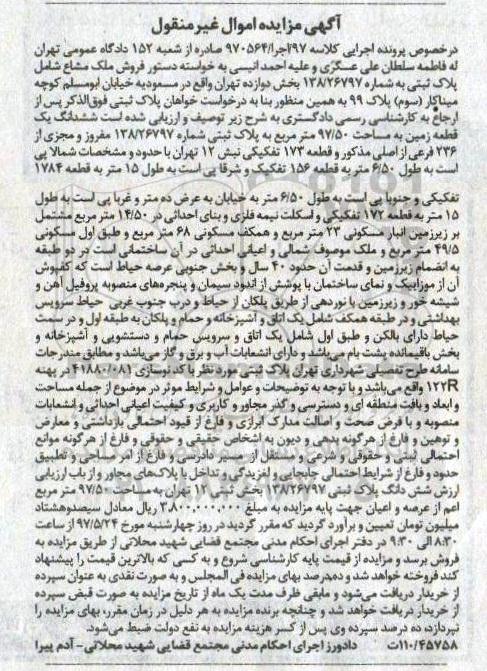 آگهی مزایده اموال غیر منقول
درخصوص پرونده اجرایی کلاسه ۹۷/اجرا/۹۷۰۵۶۴ صادره از شعبه ۱۵۲ دادگاه عمومی تهران
له فاطمه سلطان علی عسگری و علیه احمد انیسی به خواسته دستور فروش ملک مشاع شامل
پلاک ثبتی به شماره ۱۳۸/۲۶۷۹۷ بخش دوازده تهران واقع در مسعودیه خیابان ابومسلم کوچه
میناکار (سوم) پلاک ۹۹ به همین منظور بنا به درخواست خواهان پلاک ثبتی فوق‌الذکر پس از
ارجاع به کارشناسی رسمی دادگستری به شرح زیر توصیف و ارزیابی شده است ششدانگ یک
قطعه زمین به مساحت ۹۷/۵۰ متر مربع به پلاک ثبتی شماره ۱۳۸/۲۶۷۹۷ مفروز و مجزی از
۲۳۶ فرعی از اصلی مذکور و قطعه ۱۷۳ تفکیکی نبش ۱۲ تهران با حدود و مشخصات شمالا پی
است به طول ۶/۵۰ متر به قطعه ۱۵۶ تفکیک و شرقا پی است به طول ۱۵ متر به قطعه ۱۷۸۴
تفکیکی و جنوبا پی است به طول ۶/۵۰ متر به خیابان به عرض ده متر و غربا پی است به طول
۱۵ متر به قطعه ۱۷۲ تفکیکی و اسکلت نیمه فلزی و بنای احداثی در ۱۴/۵۰ متر مربع مشتمل
بر زیرزمین انبار مسکونی ۲۳ متر مربع و همکف مسکونی ۶۸ متر مربع و طبق اول مسکونی
۴۹/۵ متر مربع و ملک موصوف شمالی و اعیانی احداثی در آن ساختمانی است در دو طبقه
به انضمام زیرزمین و قدمت آن حدود ۴۰ سال و بخش جنوبی عرصه حیاط است که کفپوش
آن از موزاییک و نمای ساختمان با پوشش از اندود سیمان و پنجره‌های منصوبه پروفیل آهن و
شیشه خور و زیرزمین با نوردهی از طریق پلکان از حیاط و درب جنوب غربی حیاط سرویس
بهداشتی و در طبقه همکف شامل یک اتاق و آشپزخانه و حمام و پلکان به طبقه اول و در سمت
حیاط دارای بالکن و طبق اول شامل یک اتاق و سرویس حمام و دستشویی و آشپزخانه و
بخش باقیمانده پشت بام می‌باشد و دارای انشعابات آب و برق و گاز می‌باشد و مطابق مندرجات
سامانه طرح تفصیلی شهرداری تهران پلاک ثبتی مورد نظر با کد نوسازی ۴۱۸۸۰/۰۸۱ در پهنه
۱۲۲R واقع می‌باشد و با توجه به توضیحات و عوامل و شرایط موثر در موضوع از جمله مساحت
و ابعاد و بافت منطقه ای و دسترسی و گذر مجاور و کاربری و کیفیت اعیانی احداثی و انشعابات
منصوبه و با فرض صحت و اصالت مدارک ابرازی و فارغ از قیود احتمالی بازداشتی و معارض
و توهین و فارغ از هرگونه بدهی و دیون به اشخاص حقیقی و حقوقی و فارغ از هرگونه موانع
احتمالی ثبتی و حقوقی و شرعی و مستقل از سیر دادرسی و فارغ از امر مساحی و تطبیق
حدود و فارغ از شرایط احتمالی جابجایی و لغزیدگی و تداخل با پلاک‌های مجاور و از باب ارزیابی
ارزش شش دانگ پلاک ثبتی ۱۳۸/۲۶۷۹۷ بخش ثبتی ۱۲ تهران به مساحت ۹۷/۵۰ متر مربع
اعم از عرصه و اعیان جهت پایه مزایده به مبلغ ۳.۸۰۰.۰۰۰.۰۰۰ ریال معادل سیصدوهشتاد
میلیون تومان تعیین و برآورد گردید که مقرر گردید در روز چهارشنبه مورخ ۹۷/۵/۲۴ از ساعت
۸:۳۰ الی ۹:۳۰ در دفتر اجرای احکام مدنی مجتمع قضایی شهید محلاتی از طریق مزایده به
فروش برسد و مزایده از قیمت پایه کارشناسی شروع و به کسی که بالاترین قیمت را پیشنهاد
کند فروخته خواهد شد و ده‌درصد بهای مزایده فی المجلس و به صورت نقدی به عنوان سپرده
از خریدار دریافت می‌شود و مابقی ظرف مدت یک ماه از تاریخ مزایده به صورت قبض سپرده
از خریدار دریافت خواهد شد و چنانچه برنده مزایده به هر دلیل در زمان مقرر، بهای مزایده را
نپردازد، ده درصد سپرده وی پس از کسر هزینه مزایده به نفع دولت ضبط می‌شود.
۱۱۰/۴۵۷۵۸ت دادورز اجرای احکام مدنی مجتمع قضایی شهید محلاتی- آدم پیرا